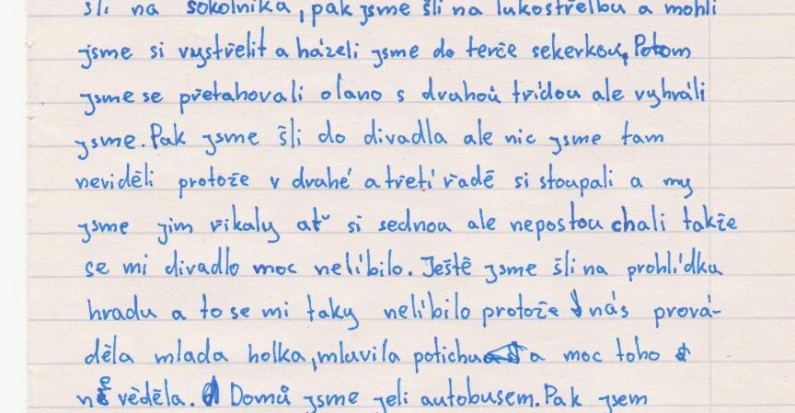 šli na sokolníka, pak jsme šli na lukostřelbu a mohli
jsme si vystřelit a házeli jsme do terče sekerkou, Potom
jsme se přetahovali olano s druhoů třídou ale vyhráli
jsme. Pak jsme šli do divadla ale nic jsme tam
neviděli protože v druhé a třetí řadě si stoupali a my
jsme jim říkaly ať si sednou ale neposlouchali takže
se mi divadlo moc nelíbilo. Ještě jsme šli na prohlídku
hradu a to se mi taky nelíbilo protože nás prová-
děla mlada holka, mluvila potichu a moc toho
nevěděla. Domů jsme jeli autobusem. Pak jsem